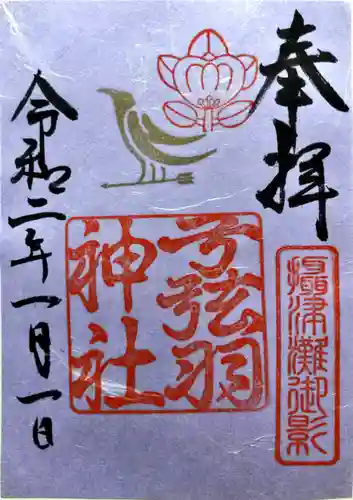 奉拝
攝津灘御影
弓弦羽
神社
令和二年一月一日